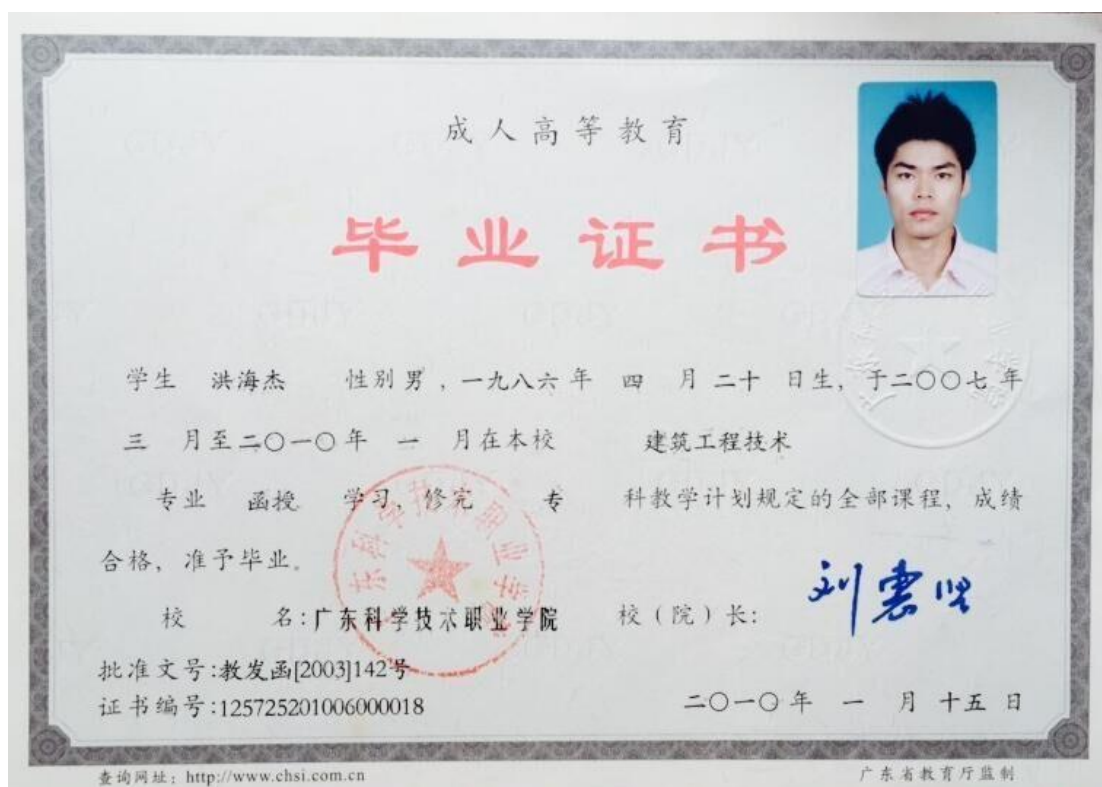 成人高等教育
毕业证书
学生 洪海杰 性别 男，一九八六年 四 月 二十 日生，于二〇〇七年
三 月至二〇一〇年 一 月在本校 建筑工程技术
专业 函授 学习，修完 专 科教学计划规定的全部课程，成绩
合格，准予毕业。
校 名：广东科学技术职业学院 校（院）长：刘云坚
批准文号：教发函[2003]142号
证书编号：125725201006000018 二〇一〇年 一 月 十五 日
查询网址：http://www.chsi.com.cn 广东省教育厅监制